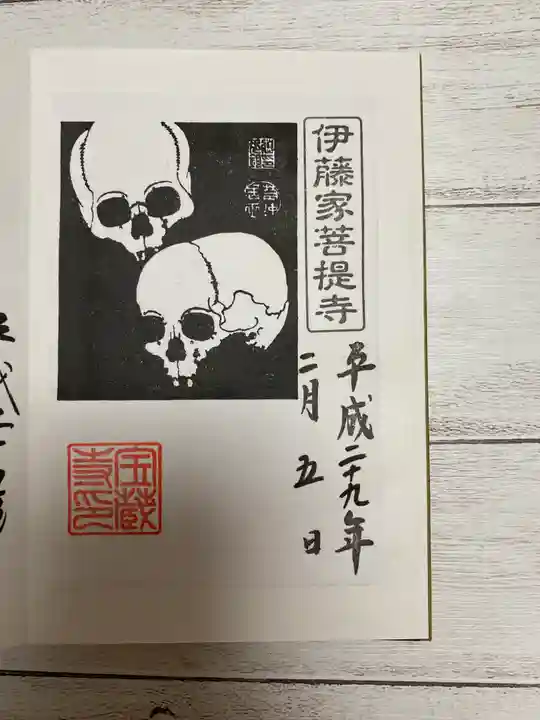 伊藤家菩提寺
平成二十九年
二月五日
宝蔵寺印